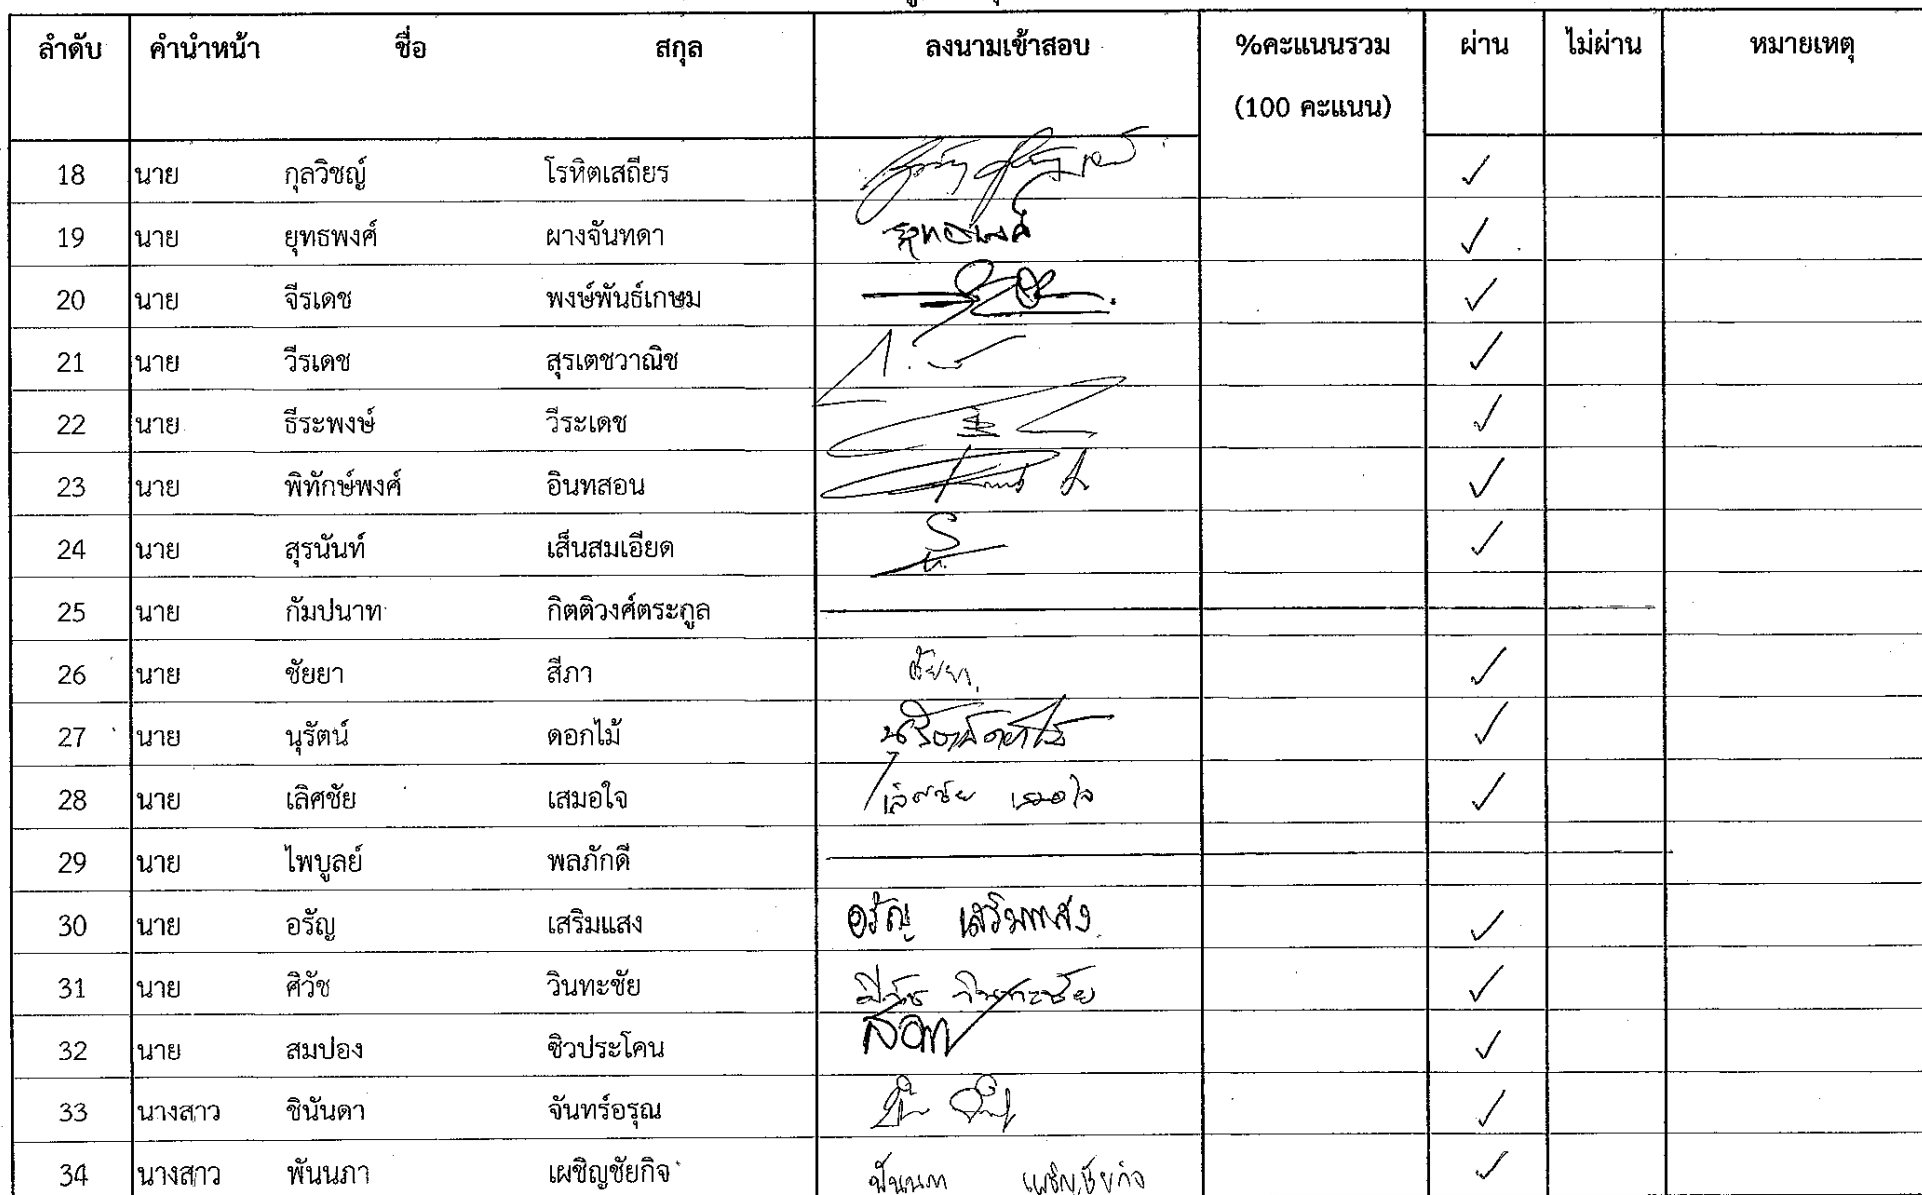 ลำดับ คำนำหน้า ชื่อ สกุล ลงนามเข้าสอบ %คะแนนรวม ผ่าน ไม่ผ่าน หมายเหตุ
(100 คะแนน)
18 นาย กุลวิชญ์ โรหิตเสถียร ✓
19 นาย ยุทธพงศ์ ผางจันทดา ยุทธพงศ์ ✓
20 นาย จีรเดช พงษ์พันธ์เกษม ✓
21 นาย วีรเดช สุรเตชวาณิช ✓
22 นาย ธีระพงษ์ วีระเดช ✓
23 นาย พิทักษ์พงศ์ อินทสอน ✓
24 นาย สุรนันท์ เส็นสมเอียด ✓
25 นาย กัมปนาท กิตติวงศ์ตระกูล
26 นาย ชัยยา สีภา ชัยยา ✓
27 นาย นุรัตน์ ดอกไม้ นุรัตน์ ดอกไม้ ✓
28 นาย เลิศชัย เสมอใจ เลิศชัย เสมอใจ ✓
29 นาย ไพบูลย์ พลภักดี
30 นาย อรัญ เสริมแสง อรัญ เสริมแสง ✓
31 นาย ศิวัช วินทะชัย ศิวัช วินทะชัย ✓
32 นาย สมปอง ซิวประโคน ✓
33 นางสาว ชินันดา จันทร์อรุณ ✓
34 นางสาว พันนภา เผชิญชัยกิจ พันนภา เผชิญชัยกิจ ✓